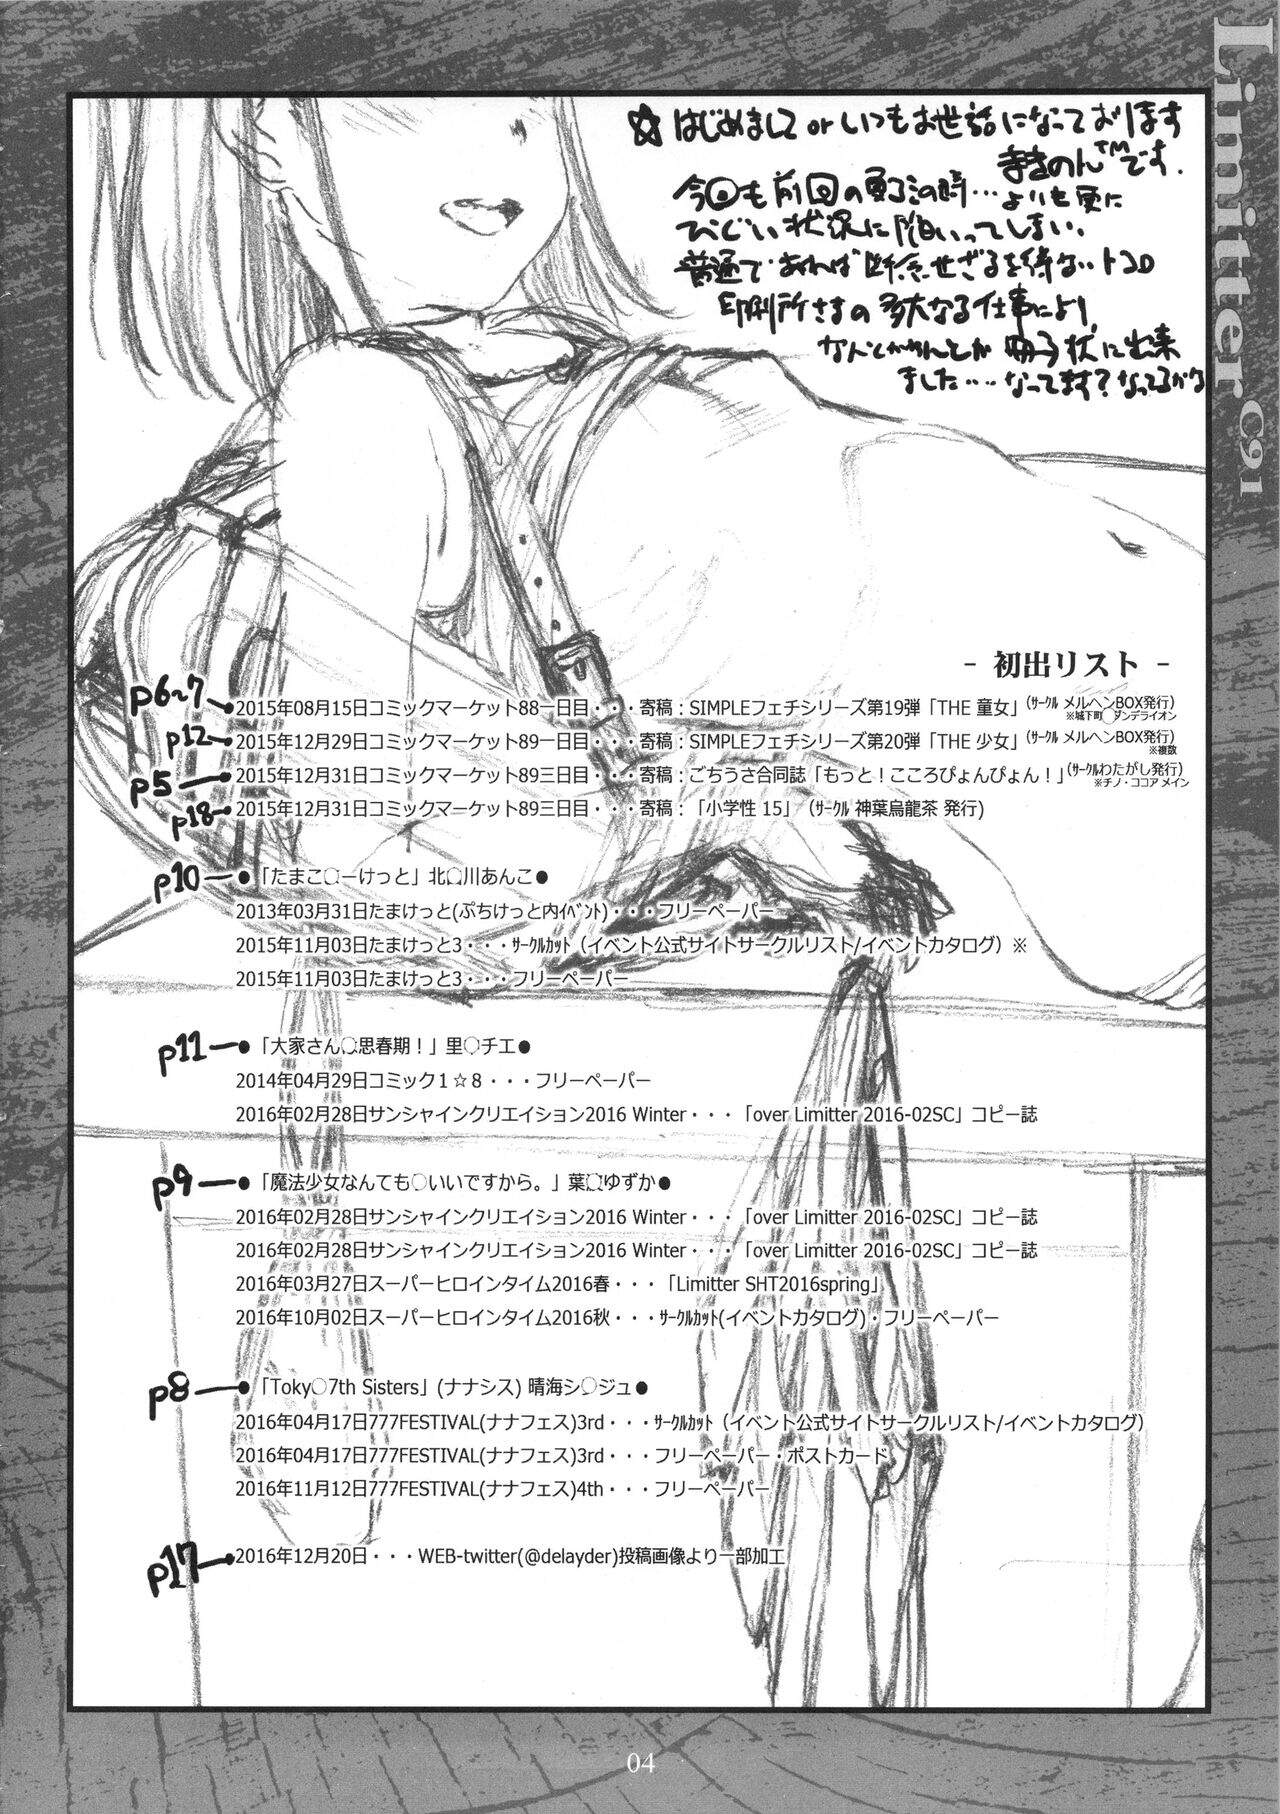 Limitter C91
☆はじめまして or いつもお世話になっております
まきのん™です.
今回も前回の
ひどい状況に陥いってしまい、
普通であれば断念せざるを得ないトコロ
印刷所さまの多大なる仕事により、
なんとかかんとか冊子状に出来
ました‥‥なってます?なってるかな
- 初出リスト -
p6~7 2015年08月15日コミックマーケット88一日目・・・寄稿：SIMPLEフェチシリーズ第19弾「THE 童女」(ｻｰｸﾙ メルヘンBOX発行)
※城下町◯ダンデライオン
p12 2015年12月29日コミックマーケット89一日目・・・寄稿：SIMPLEフェチシリーズ第20弾「THE 少女」(ｻｰｸﾙ メルヘンBOX発行)
※複数
p5 2015年12月31日コミックマーケット89三日目・・・寄稿：ごちうさ合同誌「もっと！こころぴょんぴょん！」(ｻｰｸﾙわたがし発行)
※チノ・ココア メイン
p18 2015年12月31日コミックマーケット89三日目・・・寄稿：「小学性 15」 (ｻｰｸﾙ 神葉烏龍茶 発行)
p10 ●「たまこ◯ーけっと」北◯川あんこ●
2013年03月31日たまけっと(ぷちけっと内ｲﾍﾞﾝﾄ)・・・フリーペーパー
2015年11月03日たまけっと3・・・ｻｰｸﾙｶｯﾄ（イベント公式サイトサークルリスト/イベントカタログ）※
2015年11月03日たまけっと3・・・フリーペーパー
p11 ●「大家さん◯思春期！」里◯チエ●
2014年04月29日コミック１☆８・・・フリーペーパー
2016年02月28日サンシャインクリエイション2016 Winter・・・「over Limitter 2016-02SC」コピー誌
p9 ●「魔法少女なんても◯いいですから。」葉◯ゆずか●
2016年02月28日サンシャインクリエイション2016 Winter・・・「over Limitter 2016-02SC」コピー誌
2016年02月28日サンシャインクリエイション2016 Winter・・・「over Limitter 2016-02SC」コピー誌
2016年03月27日スーパーヒロインタイム2016春・・・「Limitter SHT2016spring」
2016年10月02日スーパーヒロインタイム2016秋・・・ｻｰｸﾙｶｯﾄ(イベントカタログ)・フリーペーパー
p8 ●「Toky◯7th Sisters」(ナナシス) 晴海シ◯ジュ●
2016年04月17日777FESTIVAL(ナナフェス)3rd・・・ｻｰｸﾙｶｯﾄ（イベント公式サイトサークルリスト/イベントカタログ）
2016年04月17日777FESTIVAL(ナナフェス)3rd・・・フリーペーパー・ポストカード
2016年11月12日777FESTIVAL(ナナフェス)4th・・・フリーペーパー
p17 2016年12月20日・・・WEB-twitter(@delayder)投稿画像より一部加工
04